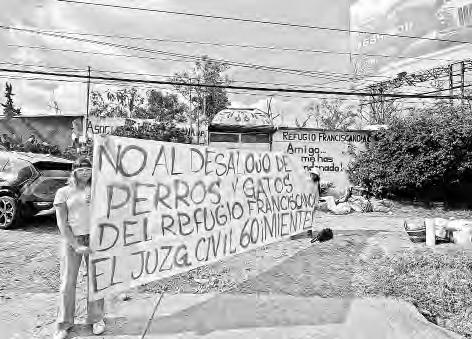 NO AL DESALOJO DE
PERROS Y GATOS
DEL REFUGIO FRANCISCANO
EL JUZG CIVIL 60 iMIENTE!
REFUGIO FRANCISCANO
Amigo...
me has